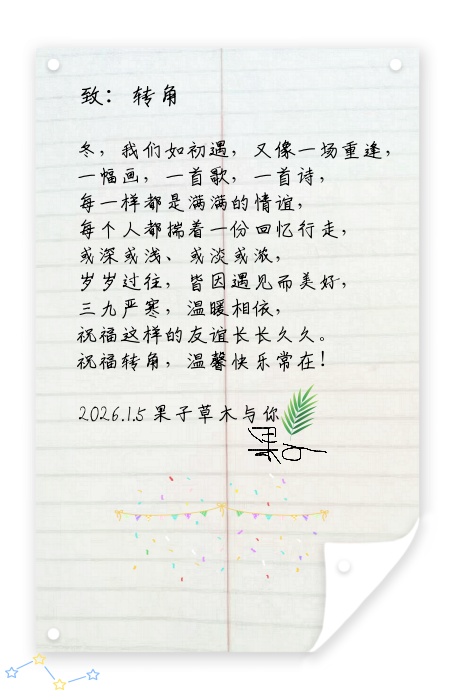 致：转角
冬，我们如初遇，又像一场重逢，
一幅画，一首歌，一首诗，
每一样都是满满的情谊，
每个人都揣着一份回忆行走，
或深或浅、或淡或浓，
岁岁过往，皆因遇见而美好，
三九严寒，温暖相依，
祝福这样的友谊长长久久。
祝福转角，温馨快乐常在！
2026.1.5果子草木与你
果子